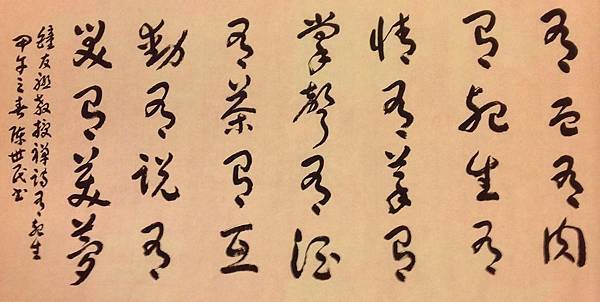 有血有肉
有生有
情有義有
掌聲有酒
有茶有互
動有說有
笑有美夢
鍾友聯教授禪詩有生
甲午之春 陳世民书